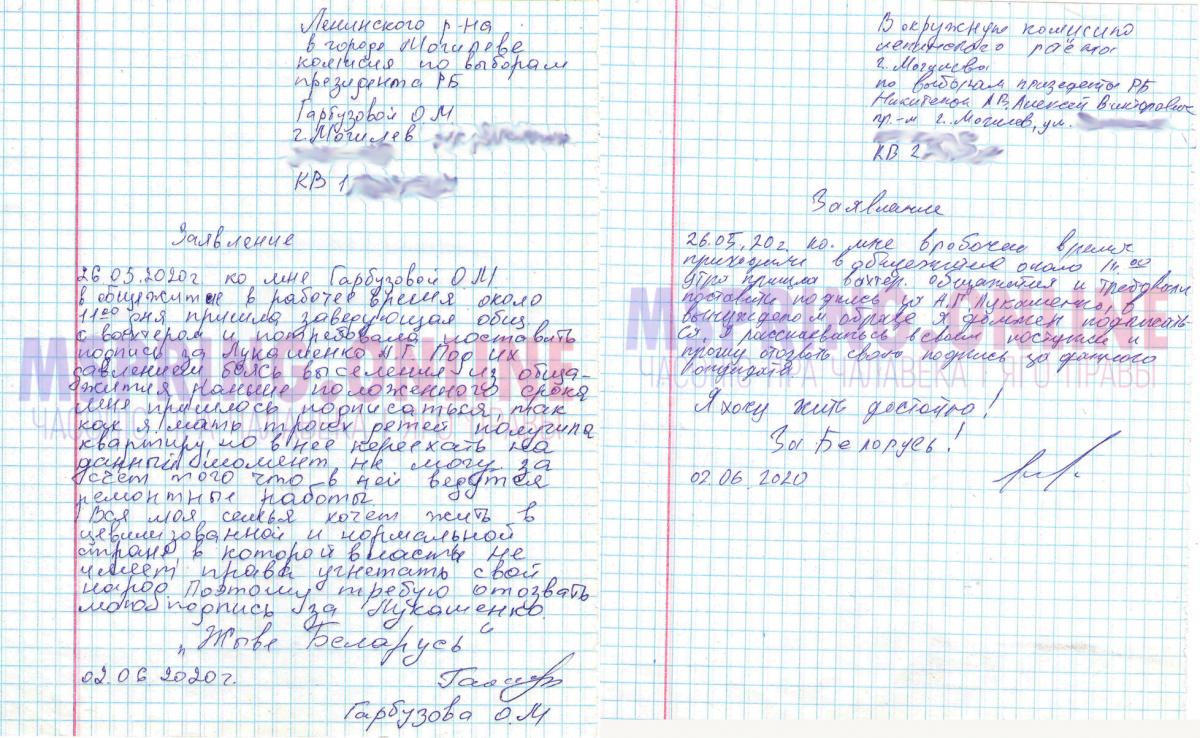 Ленинского р-на
в городе Могилеве
комисия по выборам
президента РБ
Гарбузовой О М
г. Могилев
КВ 1
Заявление
26 05.2020г ко мне Гарбузовой О М
в общежитие в рабочее время около
11 00 дня пришла заведующая общ
с вахтером и потребовала поставить
подпись за Лукашенко А.Г. Под их
давлением боясь выселения из обще-
жития раньше положенного срока
мне пришлось подписаться так
как я мать троих детей получила
квартиру, но в неё переехать на
данный момент не могу за
счёт того что в ней ведутся
ремонтные работы
Вся моя семья хочет жить в
цевилизованной и нормальной
стране в которой власть не
имеет права угнетать свой
народ. Поэтому требую отозвать
мою подпись за Лукашенко.
„Жыве Беларусь“
02.06 2020г.
Гарбузова О М
В окружную комисию
ленинского
г. Могилева
по выборам призедента РБ
Никитенок АВ, Алексей Викторович
пр.-м г. Могилев, ул.
КВ 2
Заявление
26.05.20г. ко. мне в робочее время
приходили в общежитие около
утро пришла вахтер. общажития и требовали
поставить подпись за А.Г Лукашенко, в
вынужденом образе я должен подписать-
ся. Я расскаевапюсь в своём поступке и
прошу отозвать свою подпись за данного
кандидата
Я хочу жить достойно!
За Белорусь!
02.06. 2020
ONLINE
ЧАЛАВЕКА
ЯГО ПРАВЫ